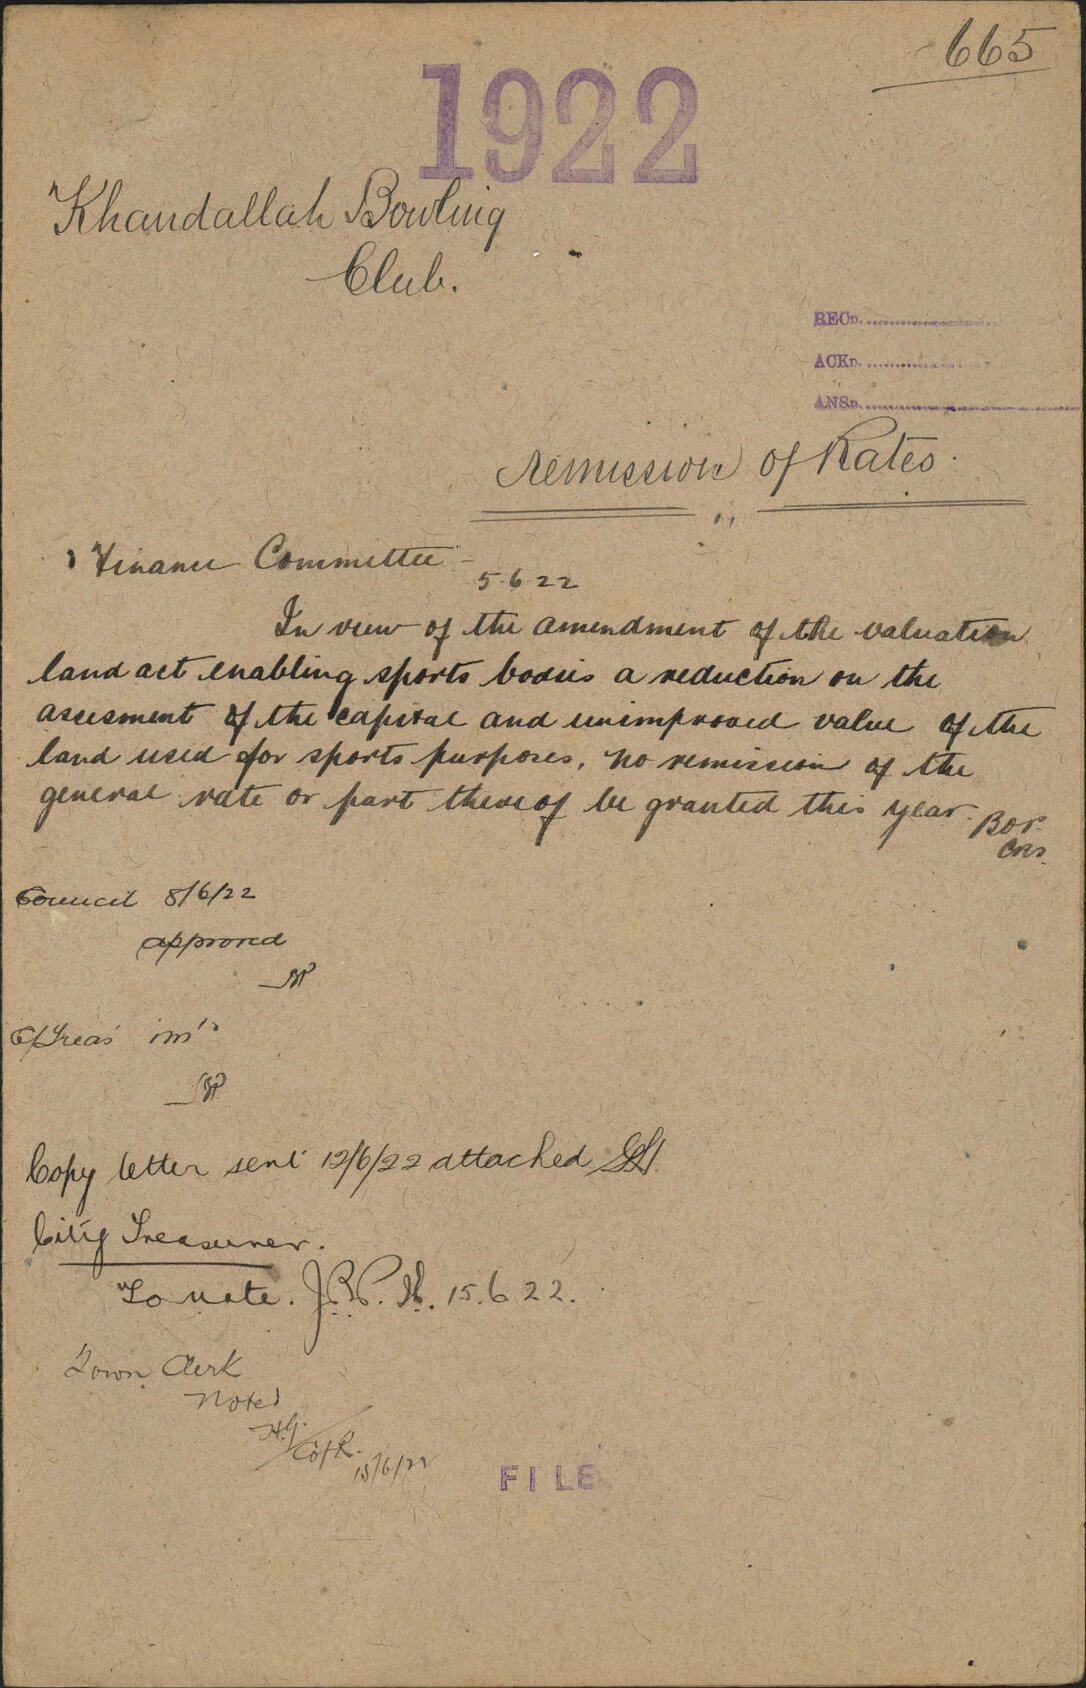 665
1922
Khandallah Bowling
Club.
RECD.
ACKD.
ANSD.
Remission of Rates.
Finance Committee -
5.6.22
In view of the amendment of the valuation
land act enabling sports bodies a reduction on the
assesment of the capital and unimproved value of the
land used for sports purposes, no remission of the
general rate or part thereof be granted this year.
Council 8/6/22
approved
C/Treas
Copy letter sent 12/6/22 attached
City Treasurer.
To note. 15.6.22.
Town Clerk
Noted
H.G.
C of R.
15/6/22
FILE